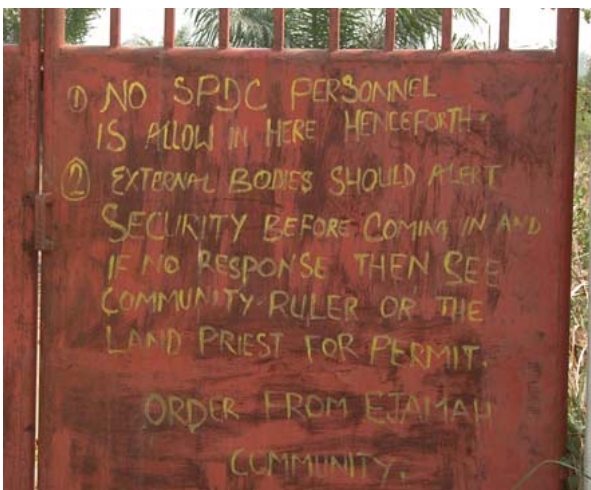 ① NO SPDC PERSONNEL
IS ALLOW IN HERE HENCEFORTH.
② EXTERNAL BODIES SHOULD ALERT
SECURITY BEFORE COMING IN AND
IF NO RESPONSE THEN SEE
COMMUNITY RULER OR THE
LAND PRIEST FOR PERMIT.
ORDER FROM EJAMAH
COMMUNITY.